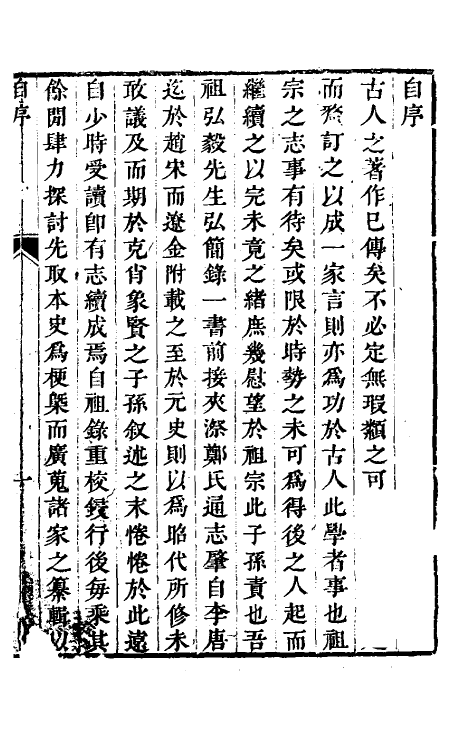 自序
古人之著作已傳矣不必定無瑕纇之可
而發訂之以成一家言則亦為功於古人此學者事也祖
宗之志事有待矣或限於時勢之未可為得後之人起而
繼續之以完未竟之緒庶幾慰望於祖宗此子孫責也吾
祖弘毅先生弘簡錄一書前接夾漈鄭氏通志肇自李唐
迄於趙宋而遼金附載之至於元史則以為昭代所修未
敢議及而期於克肖象賢之子孫叙述之末惓惓於此遠
自少時受讀卽有志續成焉自祖錄重校鋟行後每乘其
餘閒肆力探討先取本史為梗槩而廣蒐諸家之纂輯以
自序